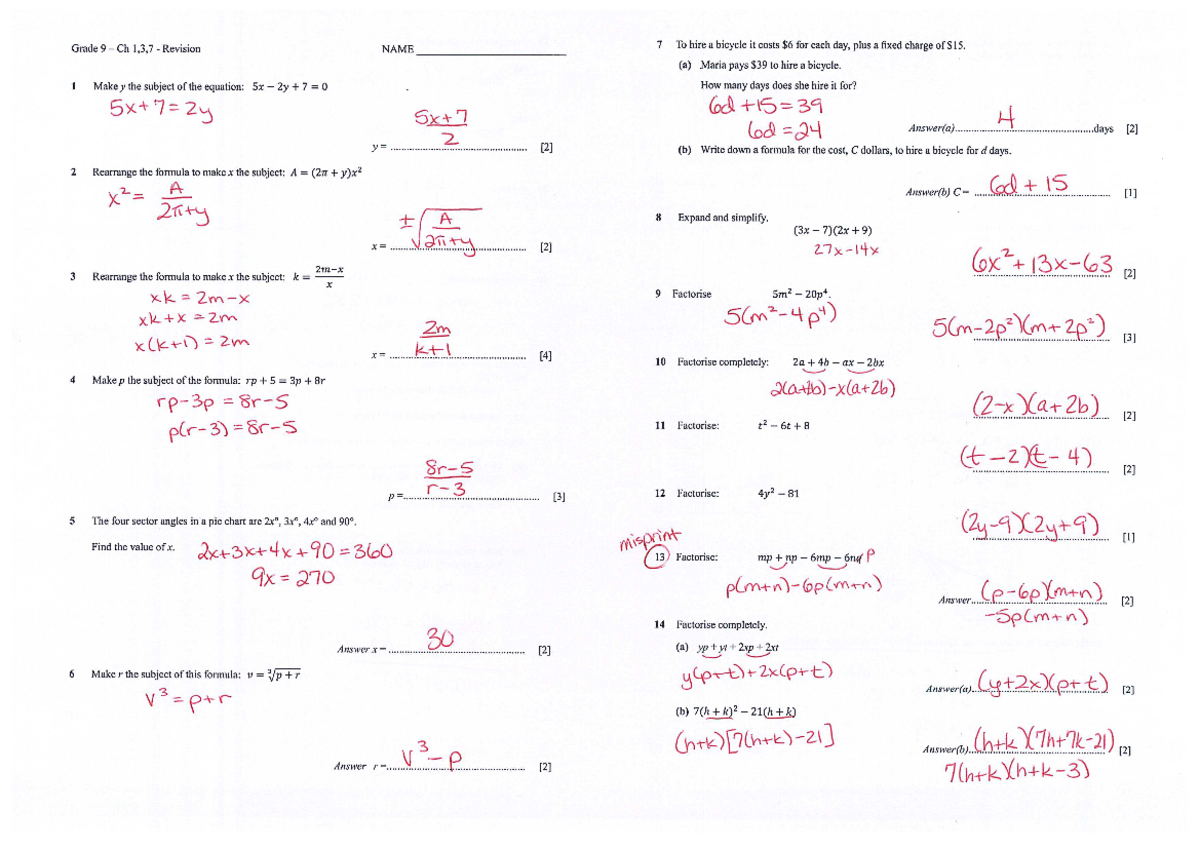 Grade 9 – Ch 1,3,7 - Revision NAME
1 Make y the subject of the equation: 5x − 2y + 7 = 0
5x+7=2y
y = (5x+7)/2 [2]
2 Rearrange the formula to make x the subject: A = (2π + y)x²
x² = A/(2π+y)
x = ±√(A/(2π+y)) [2]
3 Rearrange the formula to make x the subject: k = (2m−x)/x
xk = 2m−x
xk+x = 2m
x(k+1) = 2m
x = 2m/(k+1) [4]
4 Make p the subject of the formula: rp + 5 = 3p + 8r
rp−3p = 8r−5
p(r−3) = 8r−5
p = (8r−5)/(r−3) [3]
5 The four sector angles in a pie chart are 2x°, 3x°, 4x° and 90°.
Find the value of x.
2x+3x+4x+90=360
9x = 270
Answer x = 30 [2]
6 Make r the subject of this formula: v = ∛(p + r)
v³ = p+r
Answer r = v³−p [2]
7 To hire a bicycle it costs $6 for each day, plus a fixed charge of $15.
(a) Maria pays $39 to hire a bicycle.
How many days does she hire it for?
6d+15=39
6d=24
Answer(a) 4 days [2]
(b) Write down a formula for the cost, C dollars, to hire a bicycle for d days.
Answer(b) C = 6d + 15 [1]
8 Expand and simplify.
(3x − 7)(2x + 9)
27x−14x
6x²+13x−63 [2]
9 Factorise 5m² − 20p⁴.
5(m²−4p⁴)
5(m−2p²)(m+2p²) [3]
10 Factorise completely: 2a + 4b − ax − 2bx
2(a+2b)−x(a+2b)
(2−x)(a+2b) [2]
11 Factorise: t² − 6t + 8
(t−2)(t−4) [2]
12 Factorise: 4y² − 81
(2y−9)(2y+9) [1]
misprint
13 Factorise: mp + np − 6mp − 6nq p
p(m+n)−6p(m+n)
Answer (p−6p)(m+n) [2]
−5p(m+n)
14 Factorise completely.
(a) yp + yt + 2xp + 2xt
y(p+t)+2x(p+t)
Answer(a) (y+2x)(p+t) [2]
(b) 7(h + k)² − 21(h + k)
(h+k)[7(h+k)−21]
Answer(b) (h+k)(7h+7k−21) [2]
7(h+k)(h+k−3)